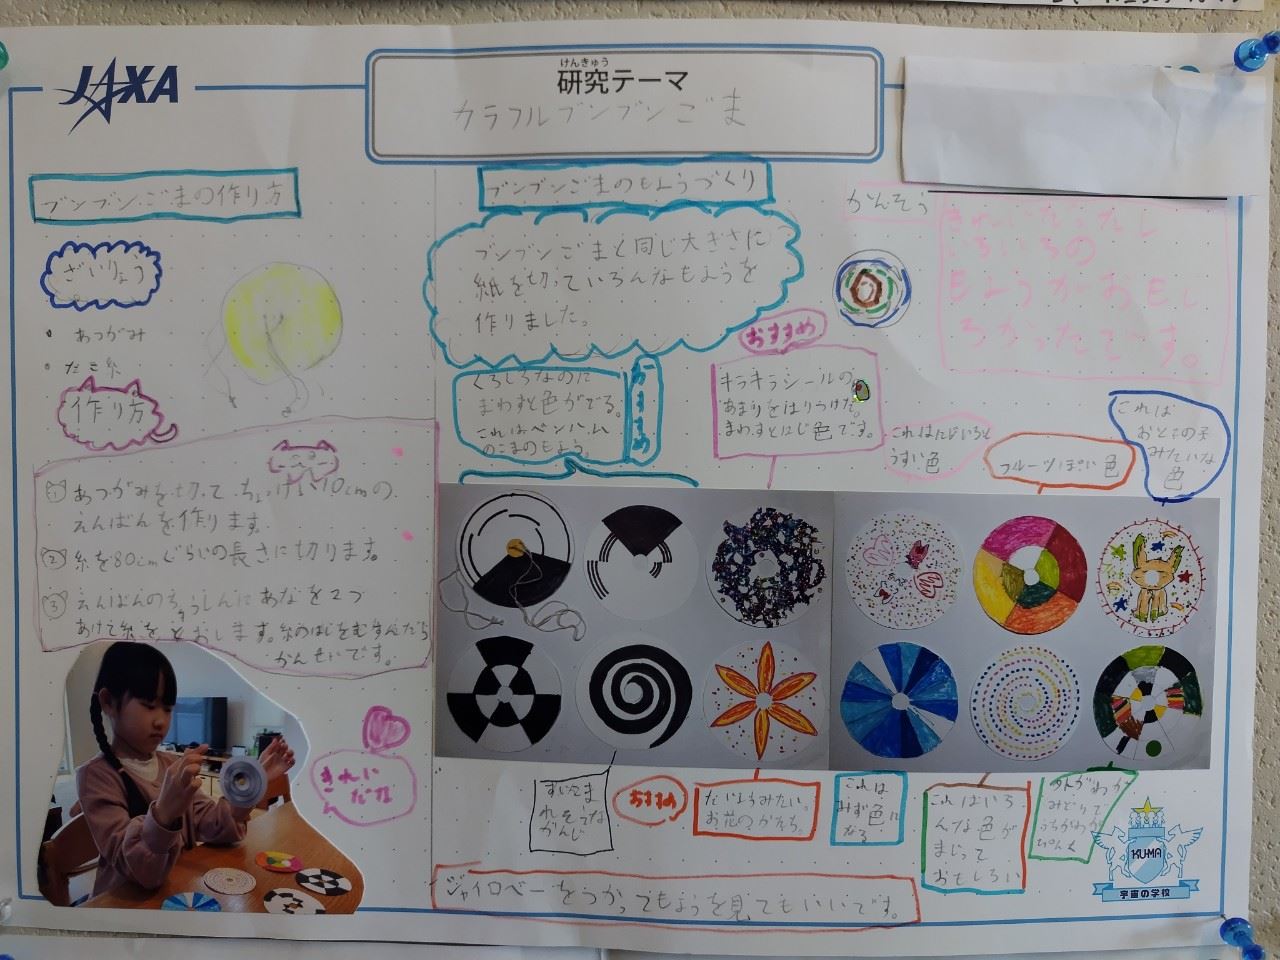 JAXA
けんきゅう
研究テーマ
カラフルブンブンごま
ブンブンごまの作り方
ざいりょう
・あつがみ
・たこ糸
作り方
① あつがみを切って、ちょっけい10cmの
えんばんを作ります。
② 糸を80cmぐらいの長さに切ります。
③ えんばんのちゅうしんにあなを2つ
あけて糸をとおします。糸のはじをむすんだら
かんせいです。
きれい
だな
ブンブンごまのもようづくり
ブンブンごまと同じ大きさに
紙を切っていろんなもようを
作りました。
くろしろなのに
まわすと色がでる。
これはベンハムの
こまのもよう。
おすすめ
おすすめ
キラキラシールの
あまりをはりつけた。
まわすとにじ色です。
かんそう
きれいだったし
いろいろの
もようがおもし
ろかったです。
これはにじいろと
うすい色
フルーツぽい色
これは
おとこの子
みたいな
色
すいこま
れそうな
かんじ
おすすめ
たいようみたい。
お花のかたち。
これは
みず色に
なる
これはいろ
んな色が
まじって
おもしろい
みどりで
うちがわが
ぴんく
ジャイロベーをつかってもようを見てもいいです。
KU-MA
宇宙の学校